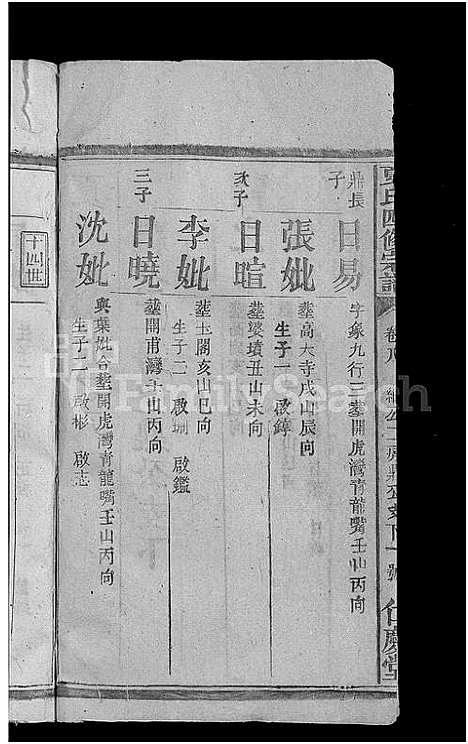 氏四修宗譜
卷
仁慶堂
鼎長子
日易
字象九行三塟開虎灣青龍嘴壬山丙向
張妣
塟高大寺戌山辰向
生子一 啟錞
次子
日暄
塟婆墳丑山未向
李妣
塟玉閣亥山巳向
生子二 啟 啟鑑
三子
日曉
塟開甫灣壬山丙向
沈妣
與葉妣合塟開虎灣青龍嘴壬山丙向
生子二 啟彬 啟志
十四世
FamilySearch